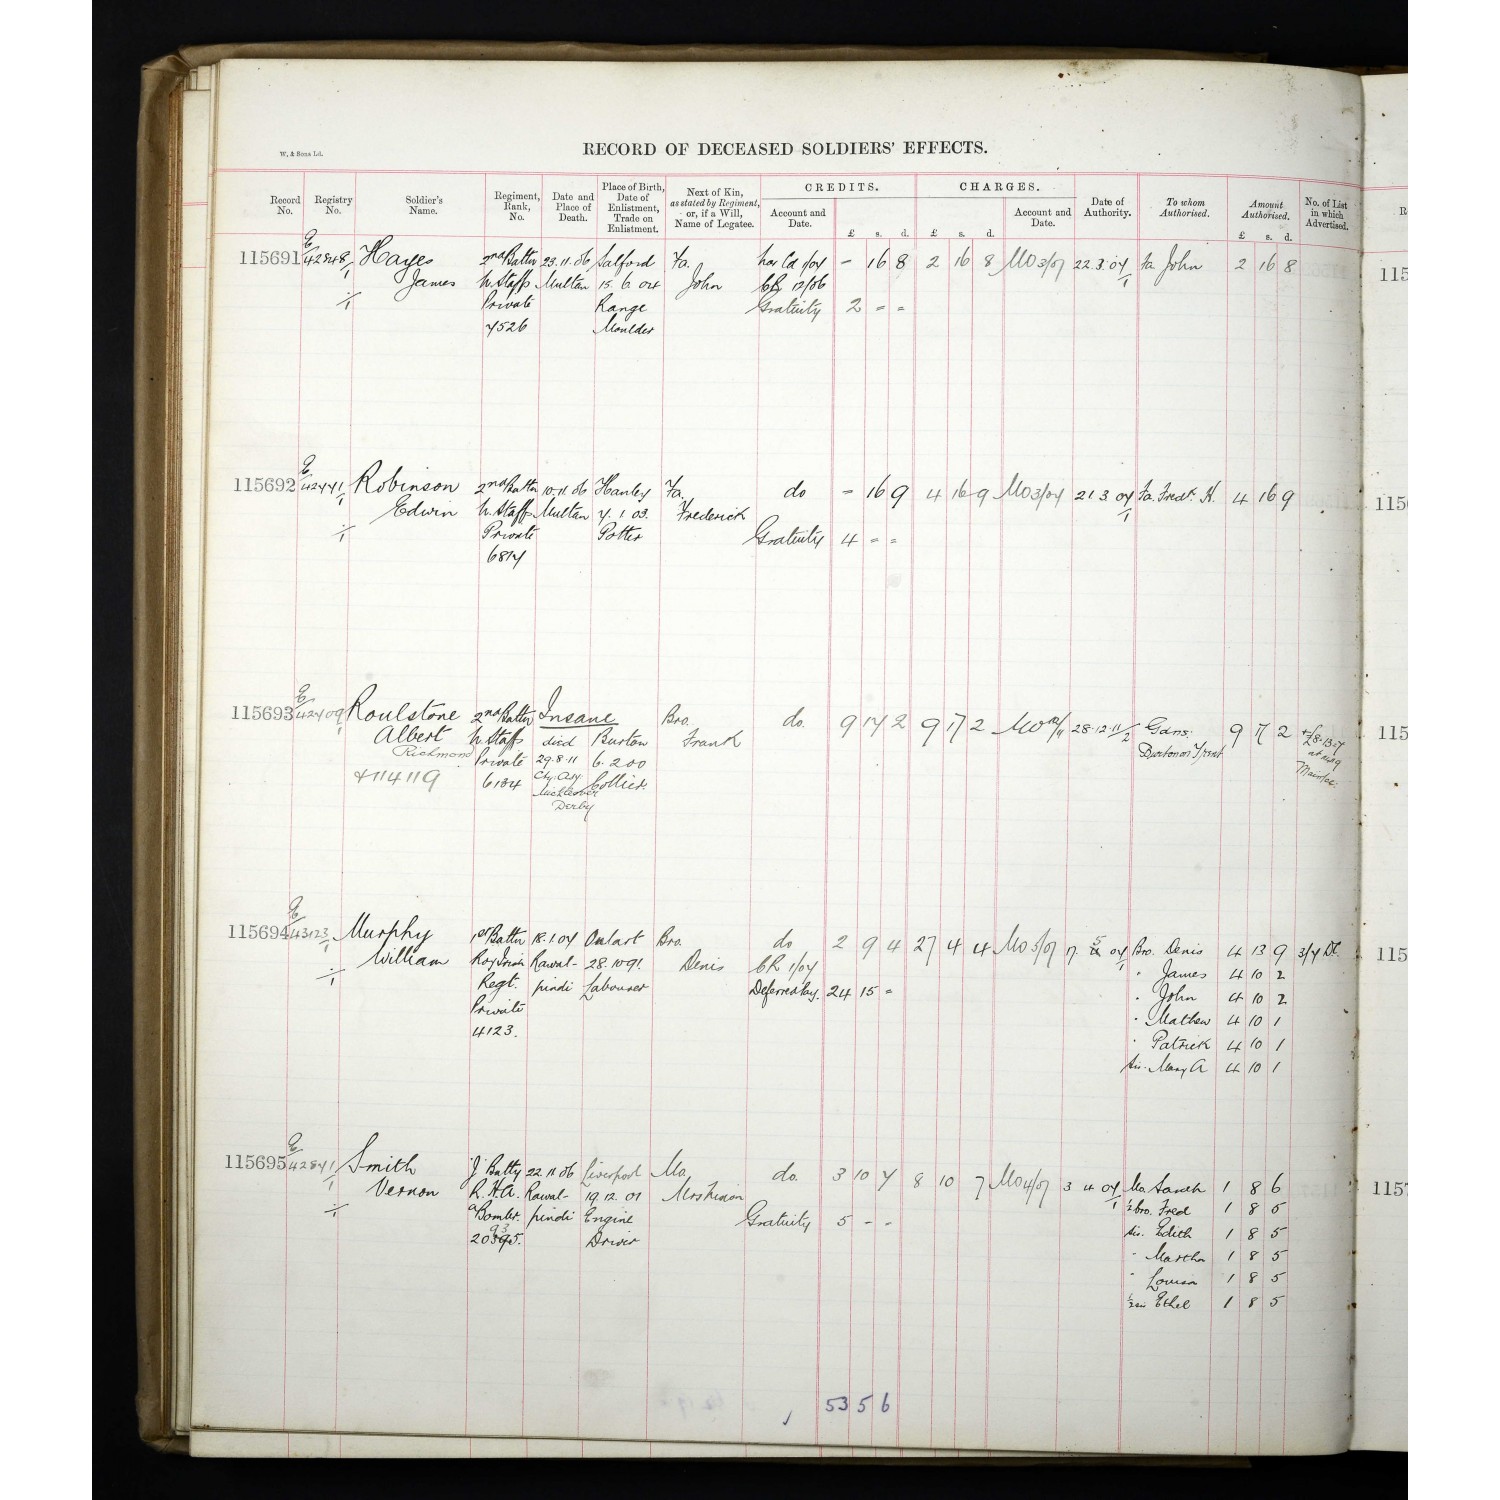 W. & Sons Ld.
RECORD OF DECEASED SOLDIERS' EFFECTS.
Record No.
Registry No.
Soldier's Name.
Regiment, Rank, No.
Date and Place of Death.
Place of Birth, Date of Enlistment, Trade on Enlistment.
Next of Kin, as stated by Regiment, or, if a Will, Name of Legatee.
CREDITS.
Account and Date.
£ s. d.
CHARGES.
£ s. d.
Account and Date.
Date of Authority.
To whom Authorised.
Amount Authorised.
£ s. d.
No. of List in which Advertised.
115691 E/42848/1 Hayes 2nd Battn 23.11.06 Salford Fa. 1/07 – 16 8 2 16 8 MO 3/07 22.3.07/1 Fa John 2 16 8
James N. Staffs Multan 15.6.04 John CR 12/06
Private Range Gratuity 2 = =
7526 Moulder
115692 E/42771/1 Robinson 2nd Battn 10.11.06 Hanley Fa. do – 16 9 4 16 9 MO 3/07 21 3 07/1 Fa. Fredk. H. 4 16 9
Edwin N. Staffs Multan 7.1.03. Frederick
Private Potter Gratuity 4 = =
6817
115693 E/42709/1 Roulstone 2nd Battn Insane Bro. do. 9 17 2 9 17 2 MO 12/11 28.12.11/2 Gdns. 9 17 2
Albert N. Staffs died Burton Frank Burton on Trent
Richmond Private 29.8.11 6.2.00
114119 6134 Cty. Asy. Collier.
Mickleover
Derby
115694 E/43123/1 Murphy 1st Battn 18.1.07 Oulart Bro. do 2 9 4 27 4 4 MO 5/07 17. 5 07/1 Bro. Denis 4 13 9 3/7 Dt.
William Roy Irish Rawal- 28.10.91. Denis CR 1/07 " James 4 10 2
Regt. pindi Labourer Deferred Pay. 24 15 = " John 4 10 2
Private " Mathew 4 10 1
4123. " Patrick 4 10 1
Sis. Mary A 4 10 1
115695 E/42871/1 Smith 'J' Batty 22.11.06 Liverpool Mo. do. 3 10 7 8 10 7 MO 4/07 3 4 07/1 Mo. Sarah 1 8 6
Vernon R.H.A. Rawal- 19.12.01 Mrs ½ bro. Fred 1 8 5
a Bombr. pindi Engine Gratuity 5 – – Sis. Edith 1 8 5
Driver " Martha 1 8 5
" Louisa 1 8 5
½ sis Ethel 1 8 5
53 5 6